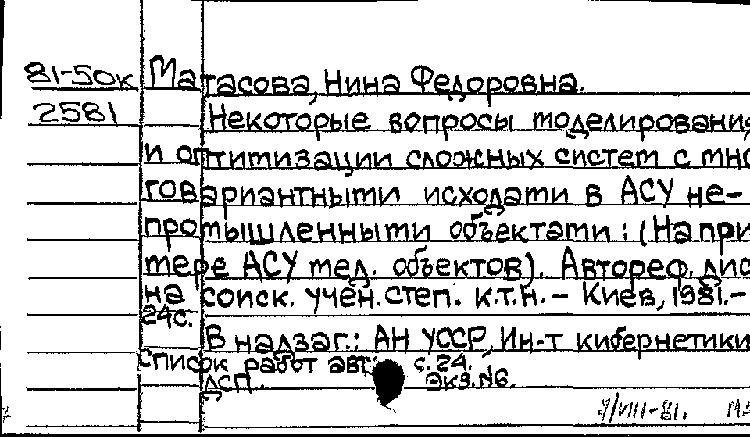 81-50к Матасова, Нина Федоровна.
2581 Некоторые вопросы моделирования
и оптимизации сложных систем с мно
говариантными исходами в АСУ не-
промышленными объектами: (На при
мере АСУ мед. объектов). Автореф. дис
на соиск. учен. степ. к.т.н. – Киев, 1981. –
24с.
В надзаг.: АН УССР, Ин-т кибернетики
Список работ авт.: с. 24.
ДСП Экз. №6.
7/VIII-81.